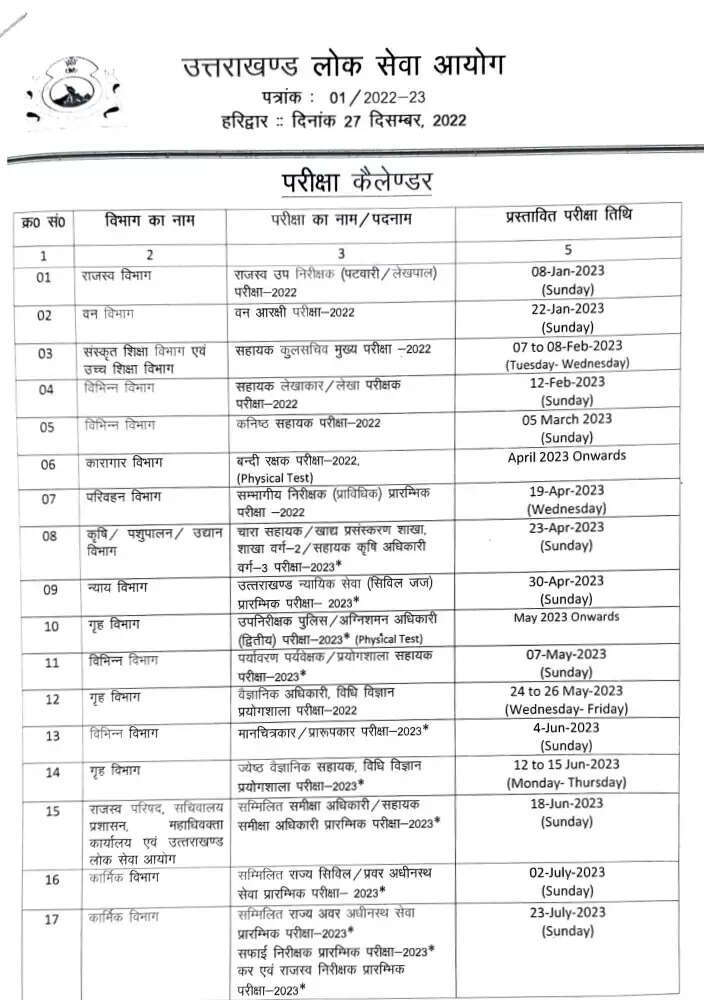 उत्तराखण्ड लोक सेवा आयोग
पत्रांक : 01/2022-23
हरिद्वार :: दिनांक 27 दिसम्बर, 2022
परीक्षा कैलेण्डर
क्र0 सं0 विभाग का नाम परीक्षा का नाम/पदनाम प्रस्तावित परीक्षा तिथि
1 2 3 5
01 राजस्व विभाग राजस्व उप निरीक्षक (पटवारी/लेखपाल) 08-Jan-2023
परीक्षा-2022 (Sunday)
02 वन विभाग वन आरक्षी परीक्षा-2022 22-Jan-2023
(Sunday)
03 संस्कृत शिक्षा विभाग एवं सहायक कुलसचिव मुख्य परीक्षा -2022 07 to 08-Feb-2023
उच्च शिक्षा विभाग (Tuesday- Wednesday)
04 विभिन्न विभाग सहायक लेखाकार/लेखा परीक्षक 12-Feb-2023
परीक्षा-2022 (Sunday)
05 विभिन्न विभाग कनिष्ठ सहायक परीक्षा-2022 05 March 2023
(Sunday)
06 कारागार विभाग बन्दी रक्षक परीक्षा-2022, April 2023 Onwards
(Physical Test)
07 परिवहन विभाग सम्भागीय निरीक्षक (प्राविधिक) प्रारम्भिक 19-Apr-2023
परीक्षा -2022 (Wednesday)
08 कृषि/ पशुपालन/ उद्यान चारा सहायक/खाद्य प्रसंस्करण शाखा, 23-Apr-2023
विभाग शाखा वर्ग-2/सहायक कृषि अधिकारी (Sunday)
वर्ग-3 परीक्षा-2023*
09 न्याय विभाग उत्तराखण्ड न्यायिक सेवा (सिविल जज) 30-Apr-2023
प्रारम्भिक परीक्षा- 2023* (Sunday)
10 गृह विभाग उपनिरीक्षक पुलिस/अग्निशमन अधिकारी May 2023 Onwards
(द्वितीय) परीक्षा-2023* (Physical Test)
11 विभिन्न विभाग पर्यावरण पर्यवेक्षक/प्रयोगशाला सहायक 07-May-2023
परीक्षा-2023* (Sunday)
12 गृह विभाग वैज्ञानिक अधिकारी, विधि विज्ञान 24 to 26 May-2023
प्रयोगशाला परीक्षा-2022 (Wednesday- Friday)
13 विभिन्न विभाग मानचित्रकार/प्रारूपकार परीक्षा-2023* 4-Jun-2023
(Sunday)
14 गृह विभाग ज्येष्ठ वैज्ञानिक सहायक, विधि विज्ञान 12 to 15 Jun-2023
प्रयोगशाला परीक्षा-2023* (Monday- Thursday)
15 राजस्व परिषद, सचिवालय सम्मिलित समीक्षा अधिकारी/सहायक 18-Jun-2023
प्रशासन, महाधिवक्ता समीक्षा अधिकारी प्रारम्भिक परीक्षा-2023* (Sunday)
कार्यालय एवं उत्तराखण्ड
लोक सेवा आयोग
16 कार्मिक विभाग सम्मिलित राज्य सिविल/प्रवर अधीनस्थ 02-July-2023
सेवा प्रारम्भिक परीक्षा- 2023* (Sunday)
17 कार्मिक विभाग सम्मिलित राज्य अवर अधीनस्थ सेवा 23-July-2023
प्रारम्भिक परीक्षा-2023* (Sunday)
सफाई निरीक्षक प्रारम्भिक परीक्षा-2023*
कर एवं राजस्व निरीक्षक प्रारम्भिक
परीक्षा-2023*